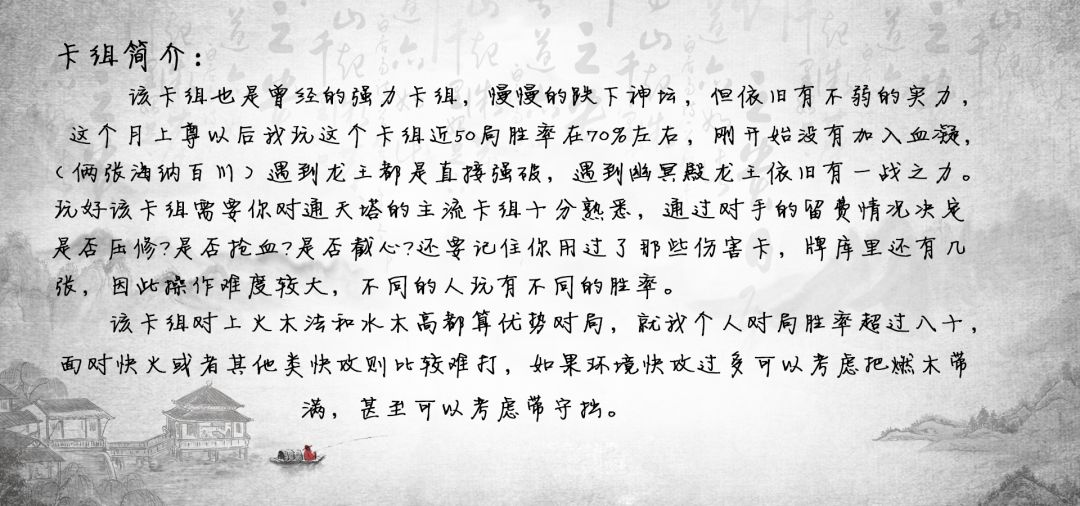 卡组简介：
该卡组也是曾经的强力卡组，慢慢的跌下神坛，但依旧有不弱的实力，
这个月上尊以后我玩这个卡组近50局胜率在70%左右，刚开始没有加入血凝，
（俩张海纳百川）遇到龙王都是直接强破，遇到幽冥殿龙王依旧有一战之力。
玩好该卡组需要你对通天塔的主流卡组十分熟悉，通过对手的留费情况决定
是否压修？是否抢血？是否截心？还要记住你用过了那些伤害卡，牌库里还有几
张，因此操作难度较大，不同的人玩有不同的胜率。
该卡组对上火木法和水木高都算优势对局，就我个人对局胜率超过八十，
面对快火或者其他类快攻则比较难打，如果环境快攻过多可以考虑把燃木带
满，甚至可以考虑带守拙。